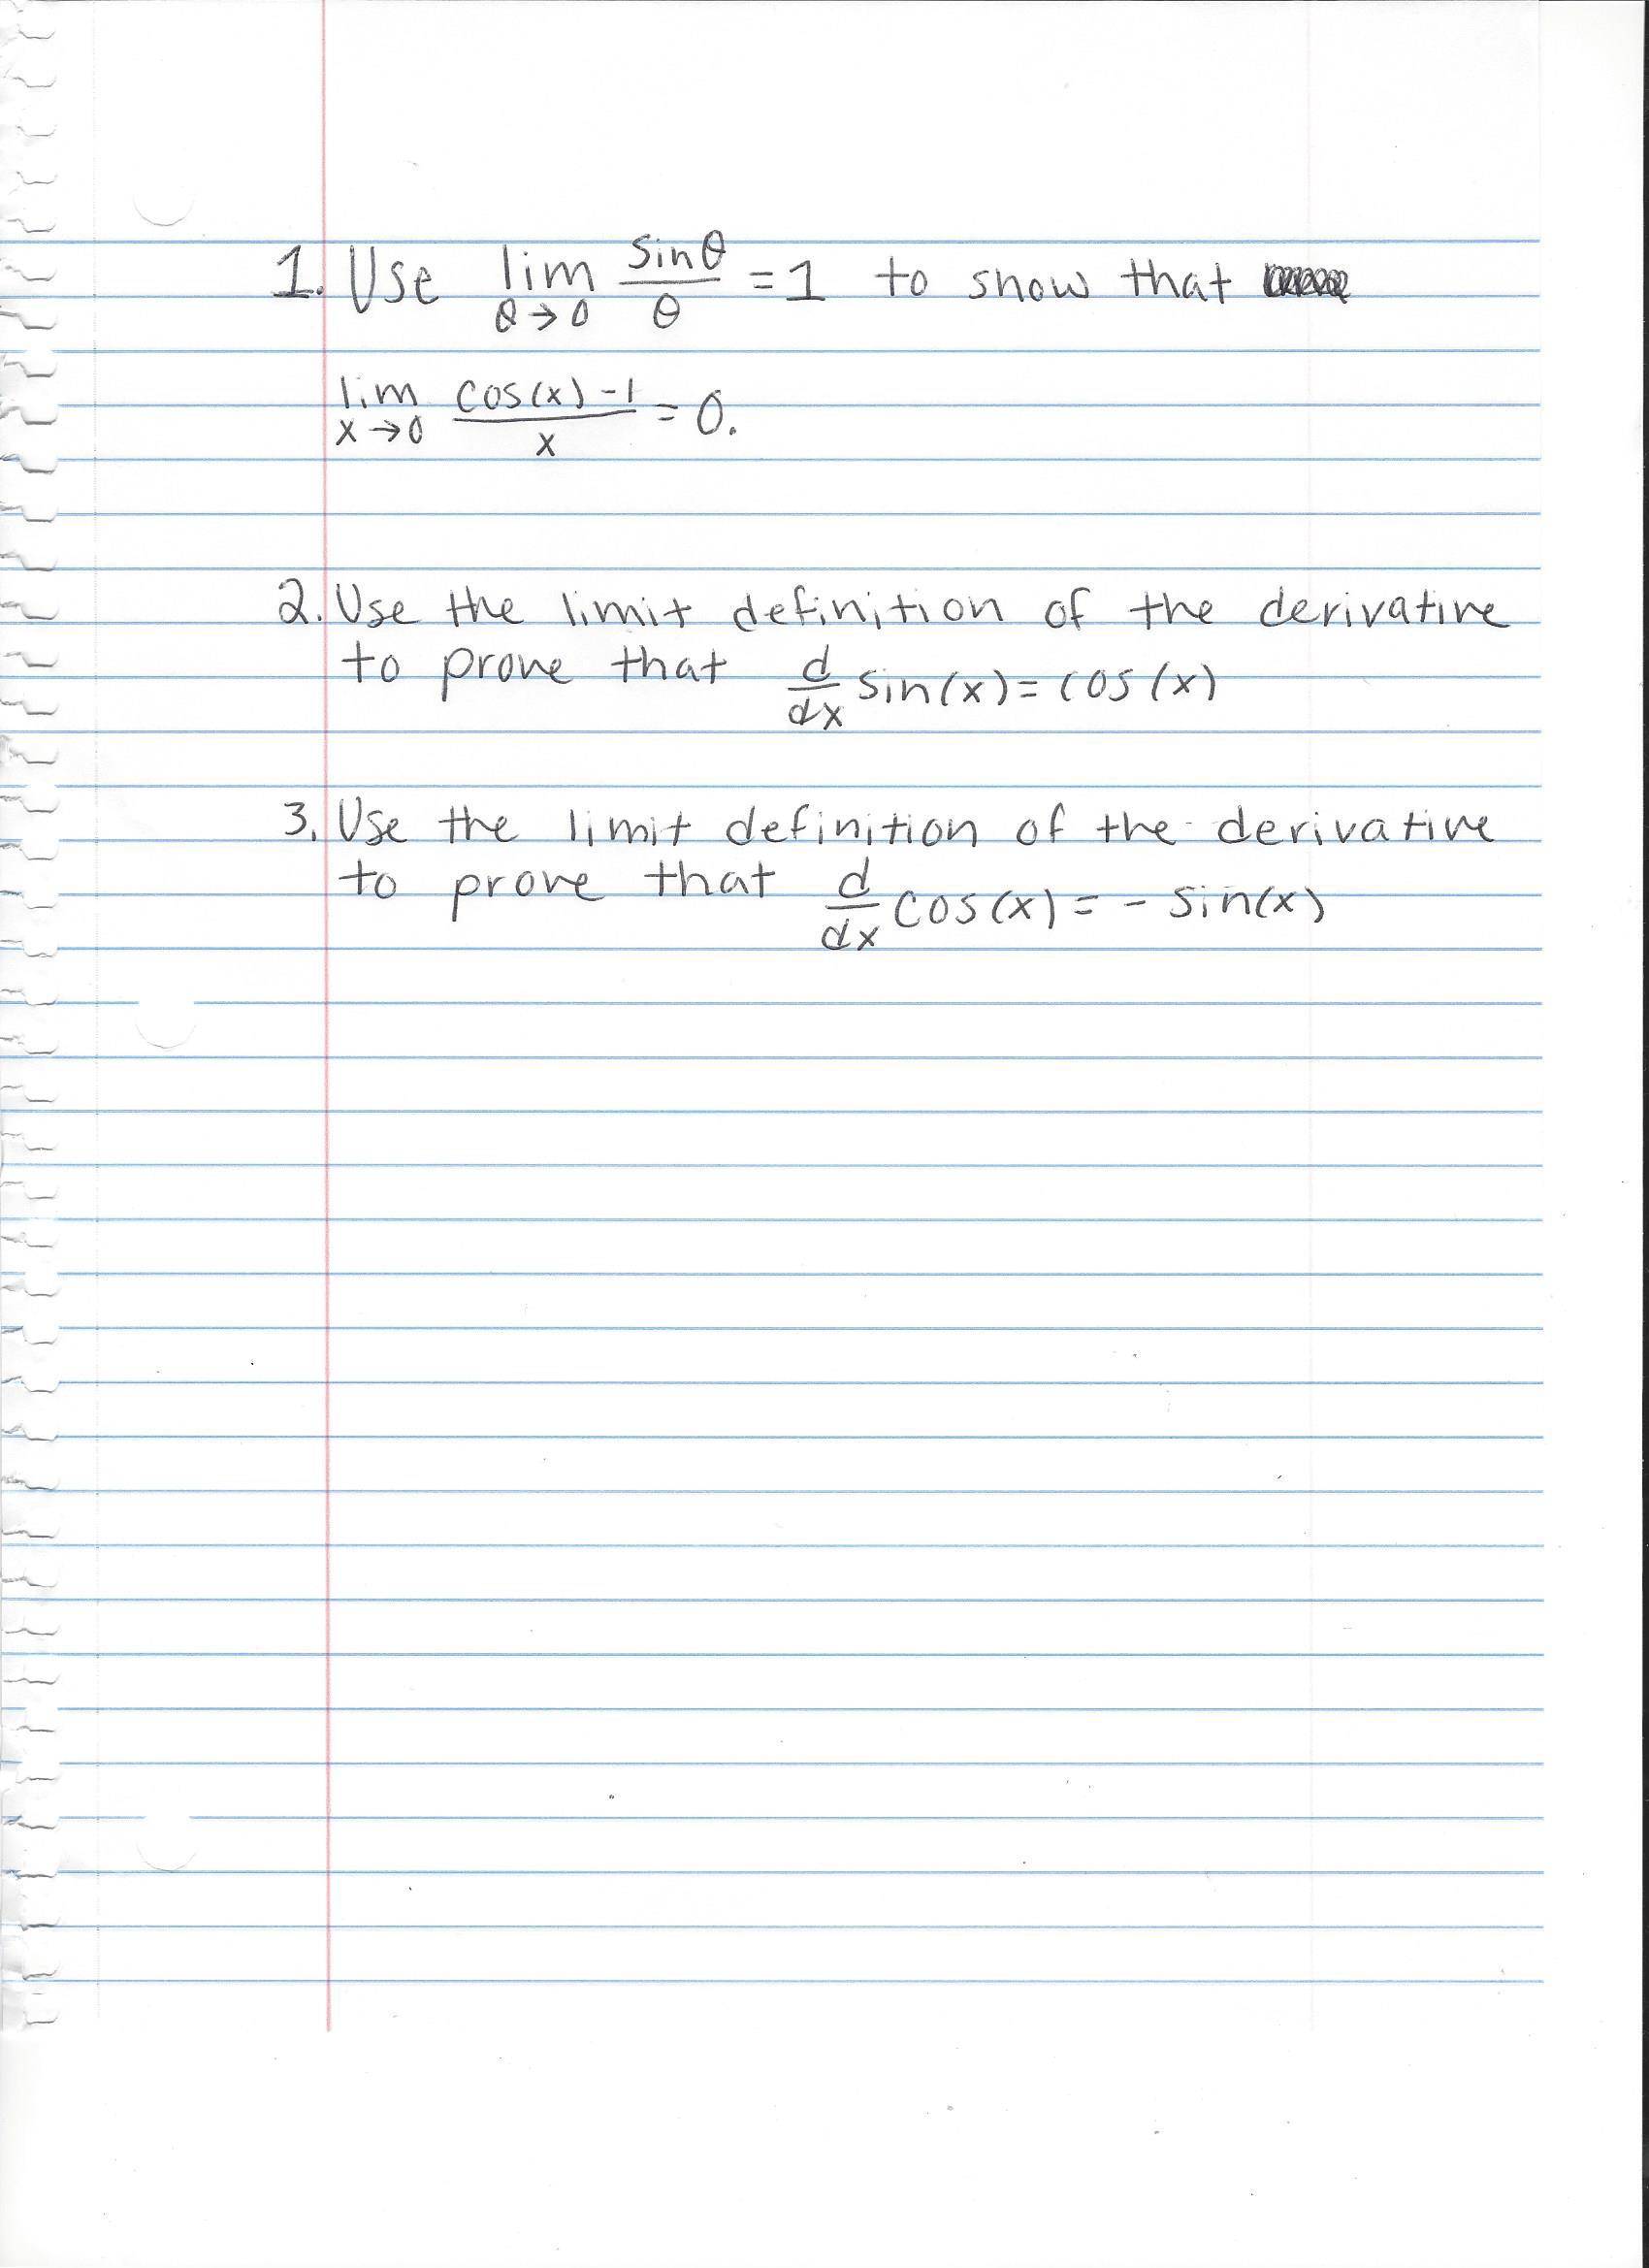 1. Use lim θ→0 sinθ/θ = 1 to show that
lim x→0 cos(x)-1/x = 0.
2. Use the limit definition of the derivative
to prove that d/dx sin(x) = cos(x)
3. Use the limit definition of the derivative
to prove that d/dx cos(x) = - sin(x)